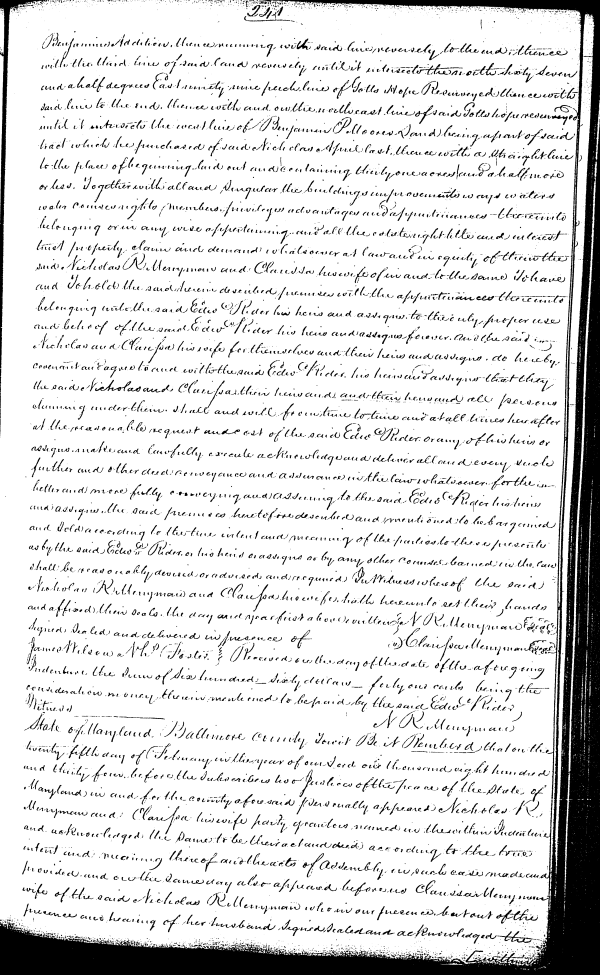 241
Benjamins Addition, thence running with said line reversely to the end, thence
with the third line of said land reversely until it intersects the north sixty seven
and a half degrees East ninety nine perch line of Gotts Hope Resurveyed thence with
said line to the end, thence with and on the north east line of said Gotts hope resurveyed
until it intersects the west line of Benjamin P Moores Land being a part of said
tract which he purchased of said Nicholas April last, thence with a straight line
to the place of beginning, laid out and containing thirty one acres and a half more
or less. Together with all and singular the buildings improvements ways waters
water courses rights, members, privileges advantages and appurtenances thereunto
belonging or in any wise appertaining, and all the estate right title and interest
trust property claim and demand whatsoever at law and in equity of them the
said Nicholas R Merryman and Clarissa his wife of in and to the same To have
and To hold the said herein described premises with the appurtenances thereunto
belonging unto the said Edwd Rider his heirs and assigns, to the only proper use
and behoof of the said Edwd Rider his heirs and assigns forever. And the said
Nicholas and Clarissa his wife for themselves and their heirs and assigns, do hereby
covenant and agree to and with the said Edwd Rider, his heirs and assigns that they
the said Nicholas and Clarissa their heirs and and their heirs and all persons
claiming under them shall and will from time to time and at all times hereafter
at the reasonable request and cost of the said Edwd Rider or any of his heirs or
assigns make and lawfully execute acknowledge and deliver all and every such
further and other deed conveyance and assurance in the law whatsoever for the
better and more fully conveying and assuring to the said Edwd Rider his heirs
and assigns, the said premises heretofore described and mentioned to be bargained
and sold according to the true intent and meaning of the parties to these presents
as by the said Edwd Rider, or his heirs or assigns or by any other counsel learned in the law
shall be reasonably devised or advised and required In Witness whereof the said
Nicholas R Merryman and Clarissa his wife hath hereunto set their hands
and affixed their seals the day and year first above written N R Merryman Seal
Signed Sealed and delivered in presence of Clarissa Merryman Seal
James Wilson Foster Received on the day of the date of the aforegoing
Indenture the Sum of Six hundred sixty dollars forty one cents being the
consideration money therein mentioned to be paid by the said Edwd Rider
Witness N R Merryman
State of Maryland Baltimore County Towit Be it Rembered that on the
twenty fifth day of February in the year of our Lord one thousand eight hundred
and thirty four before the Subscribers two Justices of the peace of the State of
Maryland in and for the county aforesaid personally appeared Nicholas R
Merryman and Clarissa his wife party grantors named in the within Indenture
and acknowledged the same to be their act and deed according to the true
intent and meaning thereof and the acts of Assembly in such case made and
provided and on the same day also appeared before us Clarissa Merryman
wife of the said Nicholas R Merryman who in our presence but out of the
presence and hearing of her husband signed sealed and acknowledged the